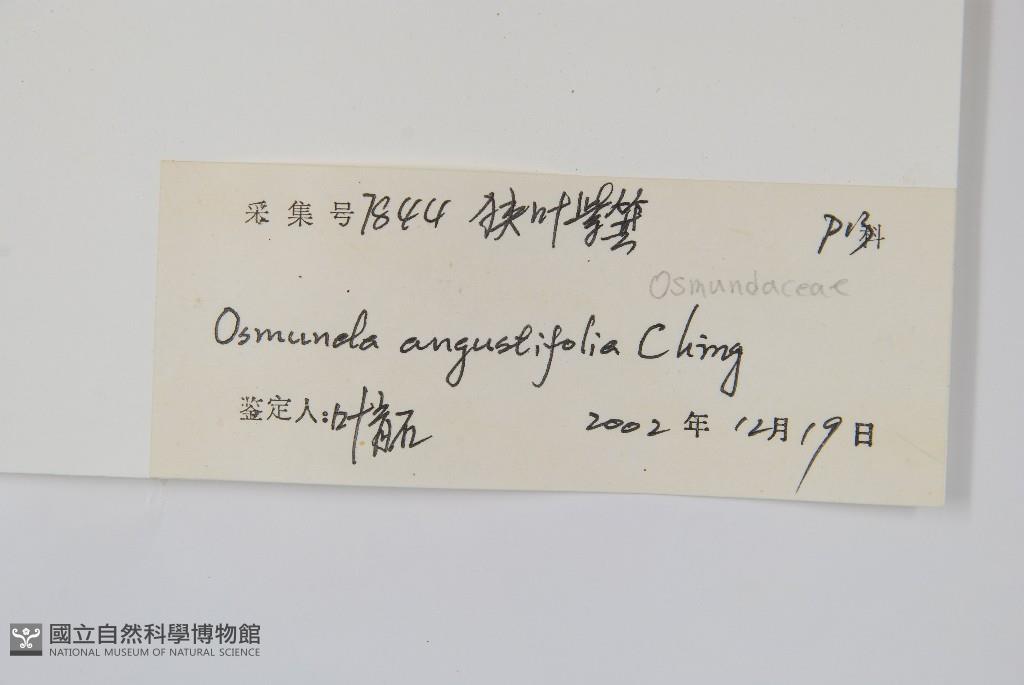 采集号 7844 狭叶紫萁 P13科
Osmundaceae
Osmunda angustifolia Ching
鉴定人:叶育石 2002年12月19日
國立自然科學博物館
NATIONAL MUSEUM OF NATURAL SCIENCE